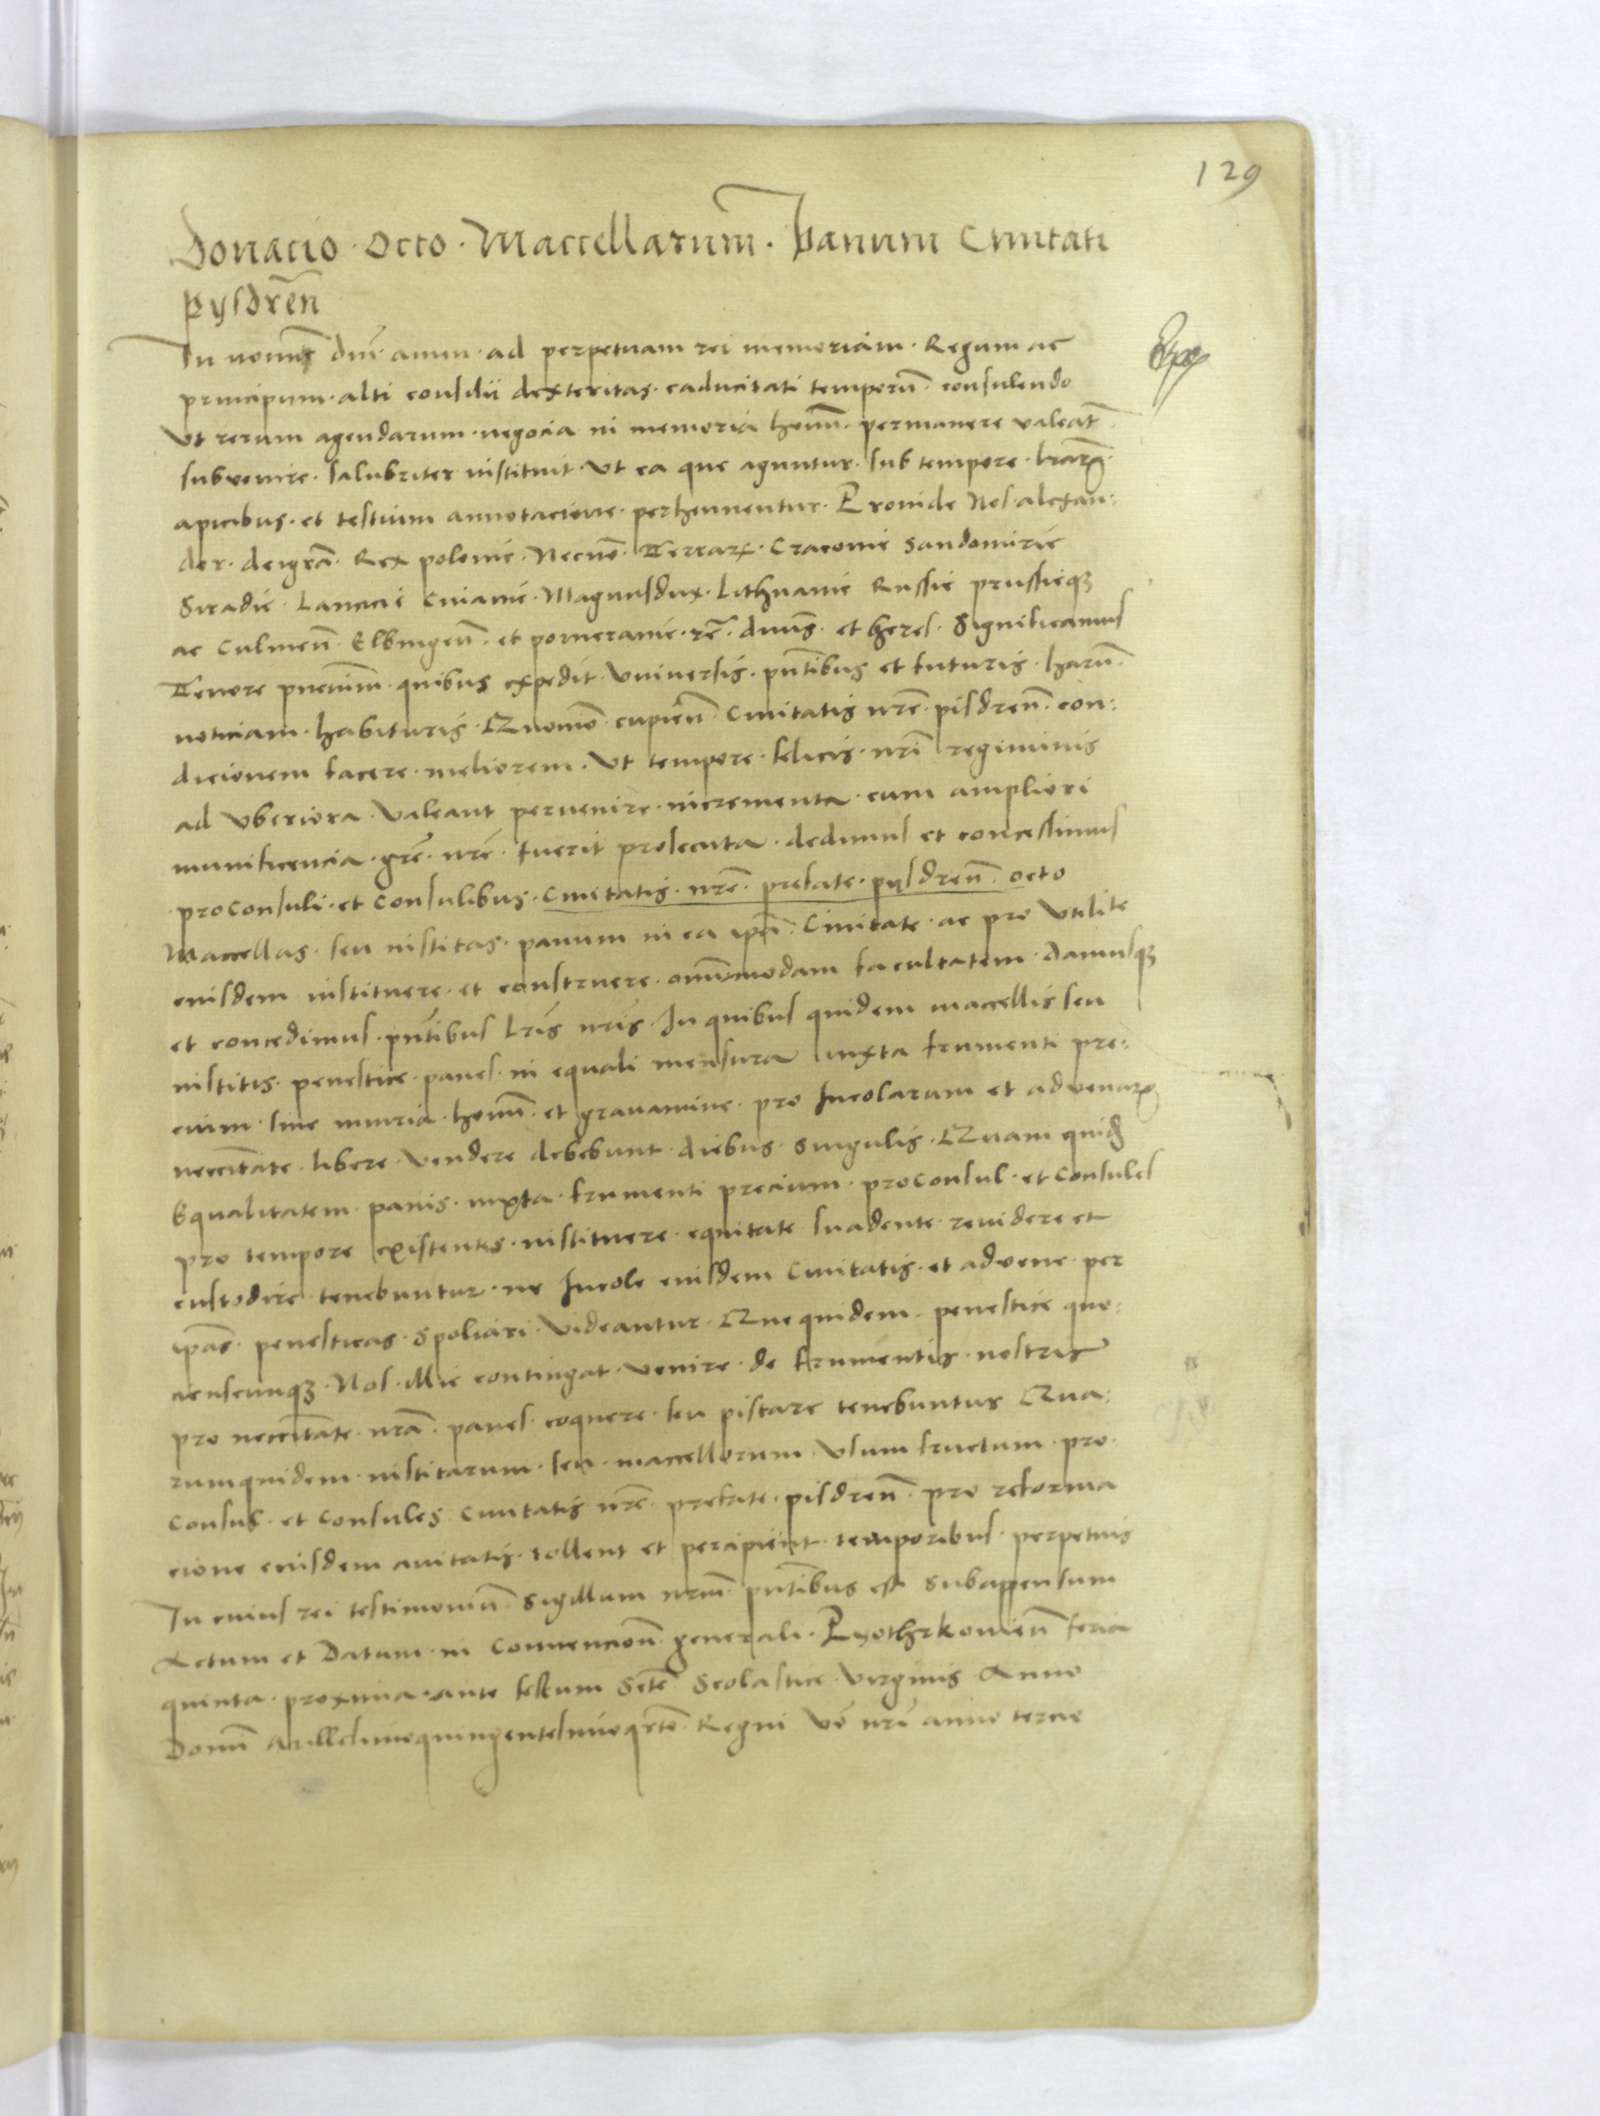 129
Donacio · Octo · Maccellarum · Panum Civitati
Pysdreñ
In nomine dñi · amen · ad perpetuam rei memoriam · Regum ac
principum · alti consilii dexteritas · caducitati temporũ · consulendo
Ut rerum agendarum · negocia in memoria homĩ · permanere valeãt
subvenire · salubriter instituit · Ut ea que aguntur · sub tempore · lrarꝫ
apicibus · et testium annotacione · perhennentur · Proinde Nos alexan:
der · dei grã · Rex polonie · Necnõ · Terrarꝫ · Cracovie Sandomirie
Siradie · Lancicie Cuiavie · Magnusdux · Lithvanie Russie prussieqꝫ
ac Culmeñ · Elbingeñ · et pomeranie · rc̃ · dñus · et heres · Significamus
Tenore pñcium · quibus expedit · Universis · pñtibus et futuris · harũ ·
noticiam · habituris · Quomõ · cupieñ · Civitatis nrẽ · pisdreñ · con:
dicionem facere · meliorem · Ut tempore · felicis · nrĩ regiminis
ad uberiora · valeant pervenire · incrementa · cum ampliori
munificencia · grẽ · nrẽ · fuerit prosecuta · dedimus et concessimus
proconsuli · et Consulibus · Civitatis · nrẽ · prefate · pysdreñ · octo
Maccellas · seu institas · panum in ea ipã · Civitate · ac pro utilite
eiusdem instituere · et construere · omnimodam facultatem · damusqꝫ
et concedimus · pñtibus lrĩs nrĩs · In quibus quidem maccellis seu
institis · penestice · panes · in equali mensura iuxta frumenti pre:
cium · sine iniuria · homĩ · et gravamine · pro Incolarum et advenarꝫ
neccitate · libere · vendere debebunt · diebus · singulis · Quam quid̃
Equalitatem · panis · iuxta · frumenti precium · proconsul · et Consules
pro tempore existentes · instituere · equitate suadente · revidere et
custodire · tenebuntur · ne Incole eiusdem Civitatis · et advene · per
ipãs · penesticas · spoliari · videantur · Que quidem · penestice quo:
cienscunqꝫ · Nos · illic contingat · venire · de frumentis · nostris
pro neccitate · nrã · panes · coquere · seu pistare tenebuntur Qua:
rumquidem · institarum · seu · maccellorum · Usum fructum · pro
consul · et Consules Civitatis nrẽ · prefate · pisdreñ · pro reforma
cione eiusdem civitatis · tollent et percipient · temporibus · perpetuis
In cuius rei testimoniũ · Sigillum nrũm · pñtibus est subappensum
Actum et Datum · in Convencioñ · generali · Pyothrkovieñ feria
quinta · proxima · ante festum Sctẽ · Scolastice · Virginis · Anno
Domĩ Millesimoquingentesimoqrtõ · Regni Võ nrĩ anno tercio